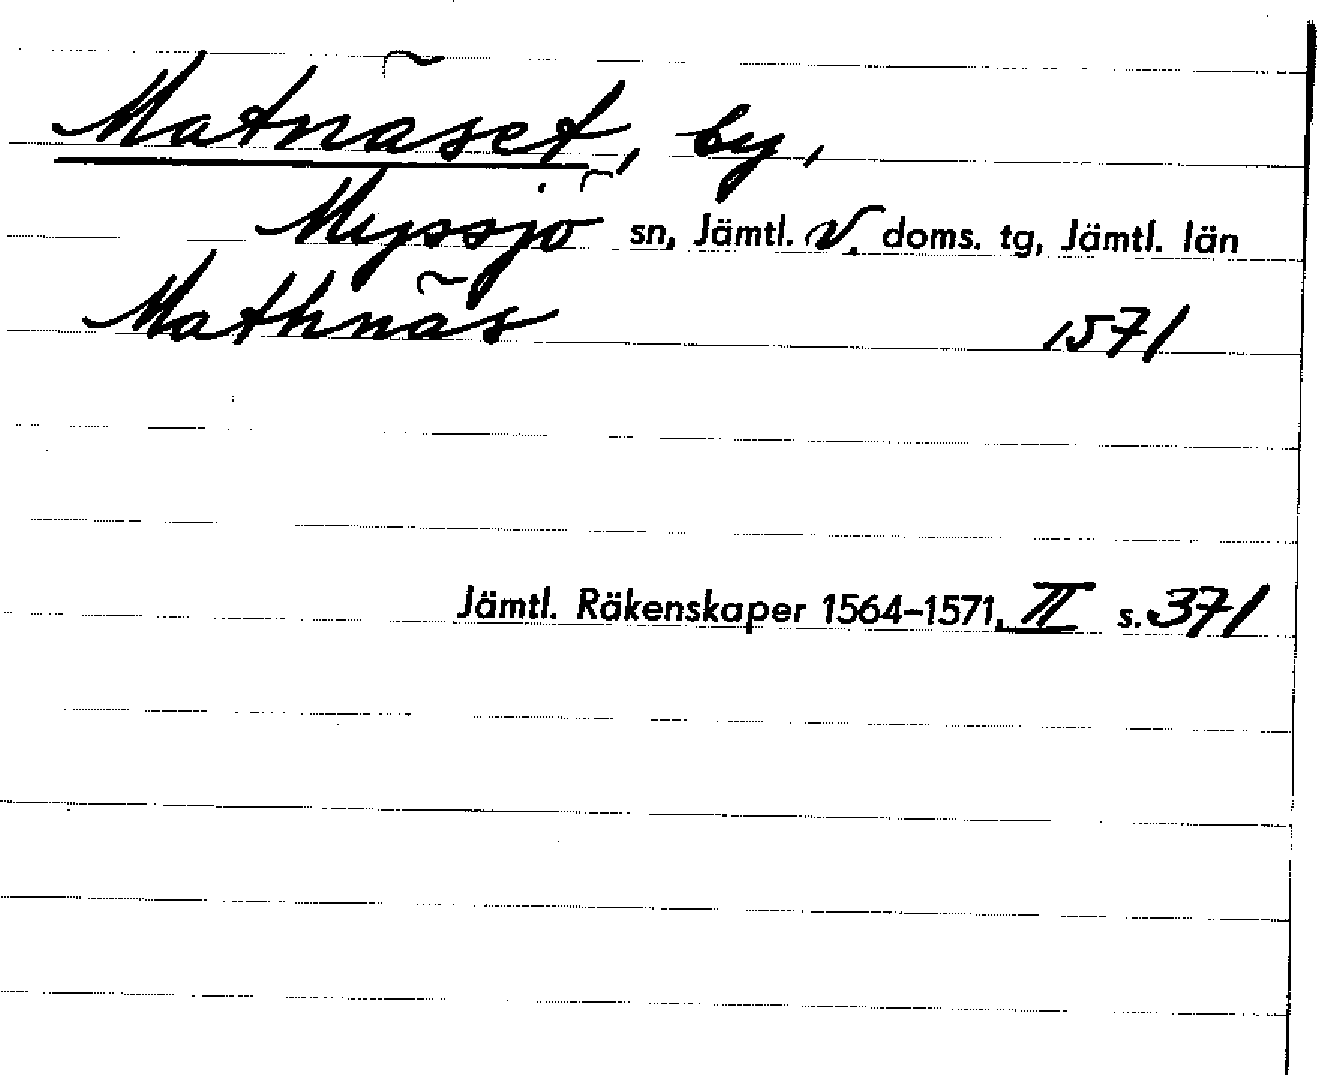 Matnäset, by,
Myssjö sn, Jämtl. V. doms. tg, Jämtl. län
Mathnäs 1571
Jämtl. Räkenskaper 1564–1571, II s. 371